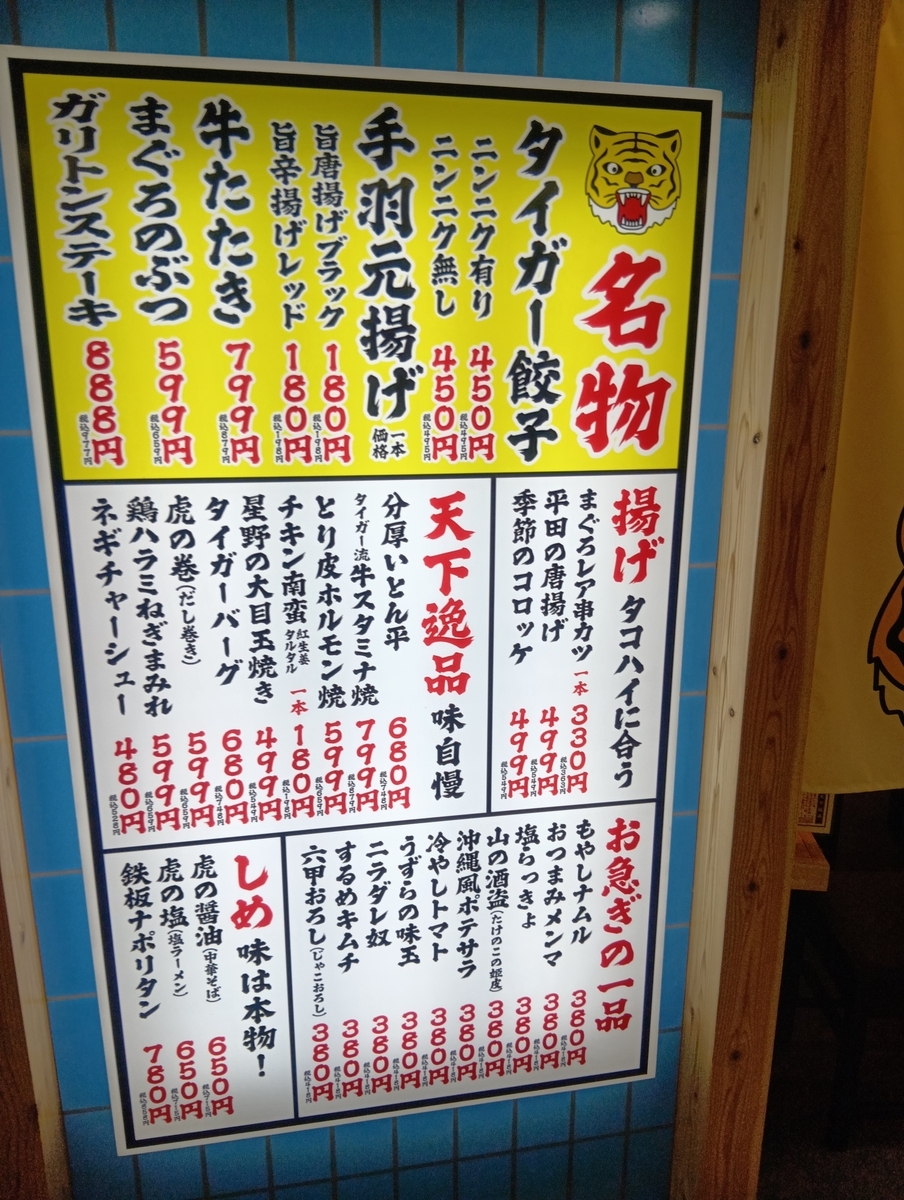 名物
タイガー餃子
ニンニク有り 450円 税込495円
ニンニク無し 450円 税込495円
手羽元揚げ 一本価格
旨唐揚げブラック 180円 税込198円
旨辛揚げレッド 180円 税込198円
牛たたき 799円 税込879円
まぐろのぶつ 599円 税込659円
ガリトンステーキ 888円 税込977円
揚げ タコハイに合う
まぐろレア串カツ 一本 330円 税込363円
平田の唐揚げ 499円 税込549円
季節のコロッケ 499円 税込549円
天下逸品 味自慢
分厚いとん平 680円 税込748円
タイガー流牛スタミナ焼 799円 税込879円
とり皮ホルモン焼 599円 税込659円
チキン南蛮 紅生姜タルタル 一本 180円 税込198円
星野の大目玉焼き 499円 税込549円
タイガーバーグ 680円 税込748円
虎の巻(だし巻き) 599円 税込659円
鶏ハラミねぎまみれ 599円 税込659円
ネギチャーシュー 480円 税込528円
お急ぎの一品
もやしナムル 380円 税込418円
おつまみメンマ 380円 税込418円
塩らっきょ 380円 税込418円
山の酒盗(たけのこの姫皮) 380円 税込418円
沖縄風ポテサラ 380円 税込418円
冷やしトマト 380円 税込418円
うずらの味玉 380円 税込418円
ニラダレ奴 380円 税込418円
するめキムチ 380円 税込418円
六甲おろし(じゃこおろし) 380円 税込418円
しめ 味は本物!
虎の醤油(中華そば) 650円 税込715円
虎の塩(塩ラーメン) 650円 税込715円
鉄板ナポリタン 780円 税込858円